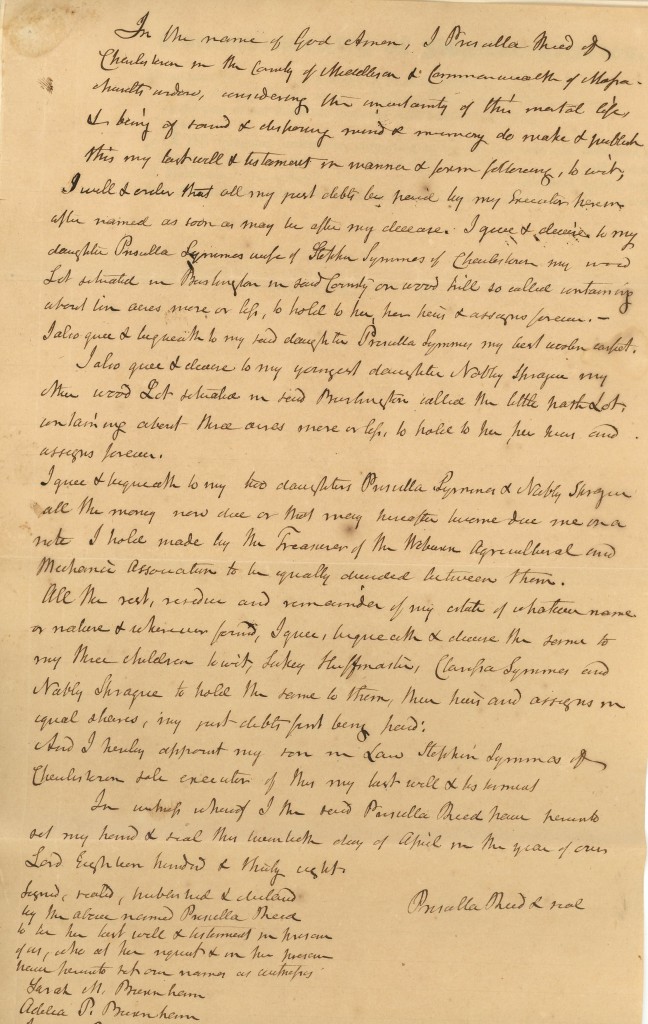 In the name of God Amen, I Priscilla Reed of
Charlestown in the County of Middlesex & Commonwealth of Massa-
chusetts widow, considering the uncertainty of this mortal life,
& being of sound & disposing mind & memory do make & publish
this my last will & testament in manner & form following, to wit,
I will & order that all my just debts be paid by my Executor herein
after named as soon as may be after my decease. I give & devise to my
daughter Priscilla Symmes wife of Stephen Symmes of Charlestown my wood
Lot situated in Burlington in said County on wood hill so called containing
about ten acres more or less, to hold to her, her heirs & assigns forever. -
I also give & bequeath to my said daughter Priscilla Symmes my best woolen carpet.
I also give & devise to my youngest daughter Nabby Sprague my
other wood Lot situated in said Burlington called the little path Lot,
containing about three acres more or less, to hold to her, her heirs and
assigns forever.
I give & bequeath to my two daughters Priscilla Symmes & Nabby Sprague
all the money now due or that may hereafter become due me on a
note I hold made by the Treasurer of the Woburn Agricultural and
Mechanic Association to be equally divided between them.
All the rest, residue and remainder of my estate of whatever name
or nature & wherever found, I give, bequeath & devise the same to
my three children towit, Sukey Huffmaster, Clarissa Symmes and
Nabby Sprague to hold the same to them, their heirs and assigns in
equal shares, my just debts first being paid.
And I hereby appoint my son in Law Stephen Symmes of
Charlestown sole executor of this my last will & testament
In witness whereof I the said Priscilla Reed have hereunto
set my hand & seal this twentieth day of April in the year of our
Lord Eighteen hundred & thirty eight.
Signed, sealed, published & declared
by the above named Priscilla Reed
to be her last will & testament in presence
of us, who at her request & in her presence
have hereunto set our names as witnesses
Priscilla Reed & seal
Sarah M. Burnham
Adelia P. Burnham